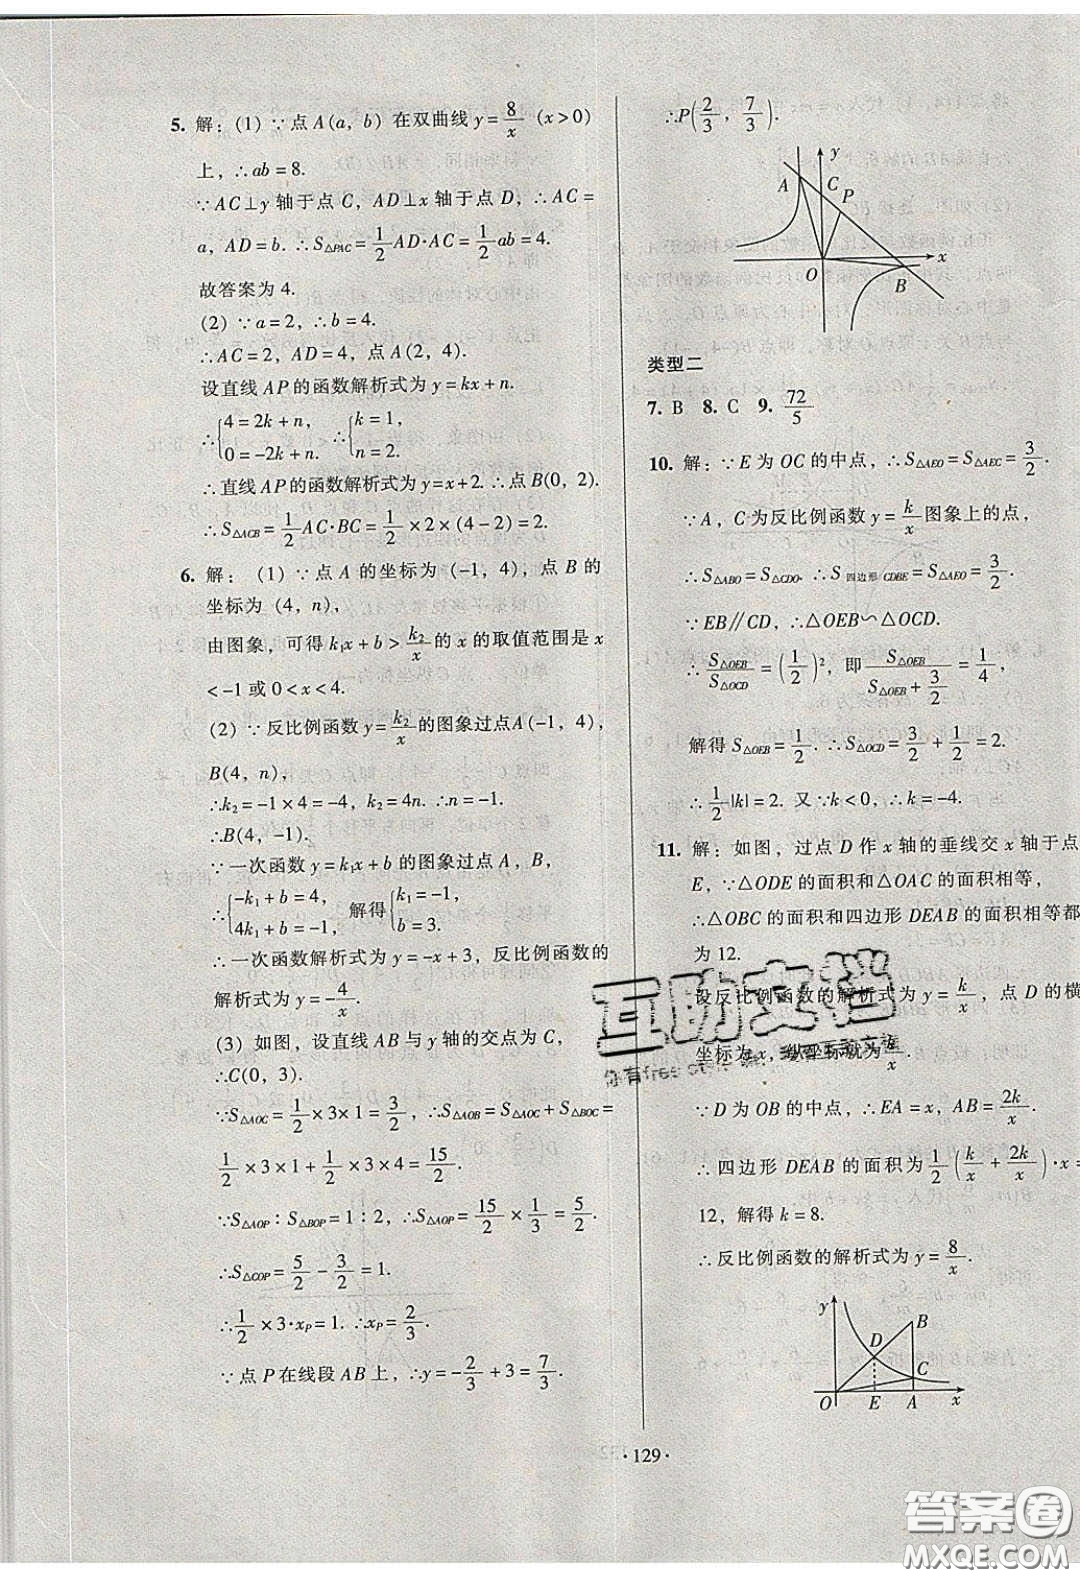 5. 解：(1) ∵点A(a，b) 在双曲线y=8/x (x>0)
上，∴ab=8.
∵AC⊥y轴于点C，AD⊥x轴于点D，∴AC=
a，AD=b. ∴S△PAC=1/2AD·AC=1/2ab=4.
故答案为4.
(2) ∵a=2，∴b=4.
∴AC=2，AD=4，点A(2，4).
设直线AP的函数解析式为y=kx+n.
∴{4=2k+n，0=-2k+n. ∴{k=1，n=2.
∴直线AP的函数解析式为y=x+2. ∴点B(0，2).
∴S△ACB=1/2AC·BC=1/2×2×(4-2)=2.
6. 解：(1) ∵点A的坐标为 (-1，4)，点B的
坐标为 (4，n)，
由图象，可得k₁x+b>k₂/x的x的取值范围是x
<-1或0<x<4.
(2) ∵反比例函数y=k₂/x的图象过点A(-1，4)，
B(4，n)，
∴k₂=-1×4=-4，k₂=4n. ∴n=-1.
∴B(4，-1).
∵一次函数y=k₁x+b的图象过点A，B，
∴{-k₁+b=4，4k₁+b=-1，解得{k₁=-1，b=3.
∴一次函数解析式为y=-x+3，反比例函数的
解析式为y=-4/x.
(3) 如图，设直线AB与y轴的交点为C，
∴C(0，3).
∵S△AOC=1/2×3×1=3/2，∴S△AOB=S△AOC+S△BOC=
1/2×3×1+1/2×3×4=15/2.
∵S△AOP∶S△BOP=1∶2，∴S△AOP=15/2×1/3=5/2.
∴S△COP=5/2-3/2=1.
∴1/2×3·xP=1. ∴xP=2/3.
∵点P在线段AB上，∴y=-2/3+3=7/3.
∴P(2/3，7/3).
y
A C P
O x
B
类型二
7. B 8. C 9. 72/5
10. 解：∵E为OC的中点，∴S△AEO=S△AEC=3/2.
∵A，C为反比例函数y=k/x图象上的点，
∴S△ABO=S△CDO. ∴S四边形CDBE=S△AEO=3/2.
∵EB∥CD，∴△OEB∽△OCD.
∴S△OEB/S△OCD=(1/2)²，即S△OEB/(S△OEB+3/2)=1/4，
解得S△OEB=1/2. ∴S△OCD=3/2+1/2=2.
∴1/2|k|=2. 又∵k<0，∴k=-4.
11. 解：如图，过点D作x轴的垂线交x轴于点
E，∵△ODE的面积和△OAC的面积相等，
∴△OBC的面积和四边形DEAB的面积相等都
为12.
设反比例函数的解析式为y=k/x，点D的横
坐标为x，纵坐标就为k/x.
∵D为OB的中点，∴EA=x，AB=2k/x.
∴四边形DEAB的面积为1/2(k/x+2k/x)·x=
12，解得k=8.
∴反比例函数的解析式为y=8/x.
y
B
D
C
O E A x
·129·
互助文档
答案圈
MXQE.COM